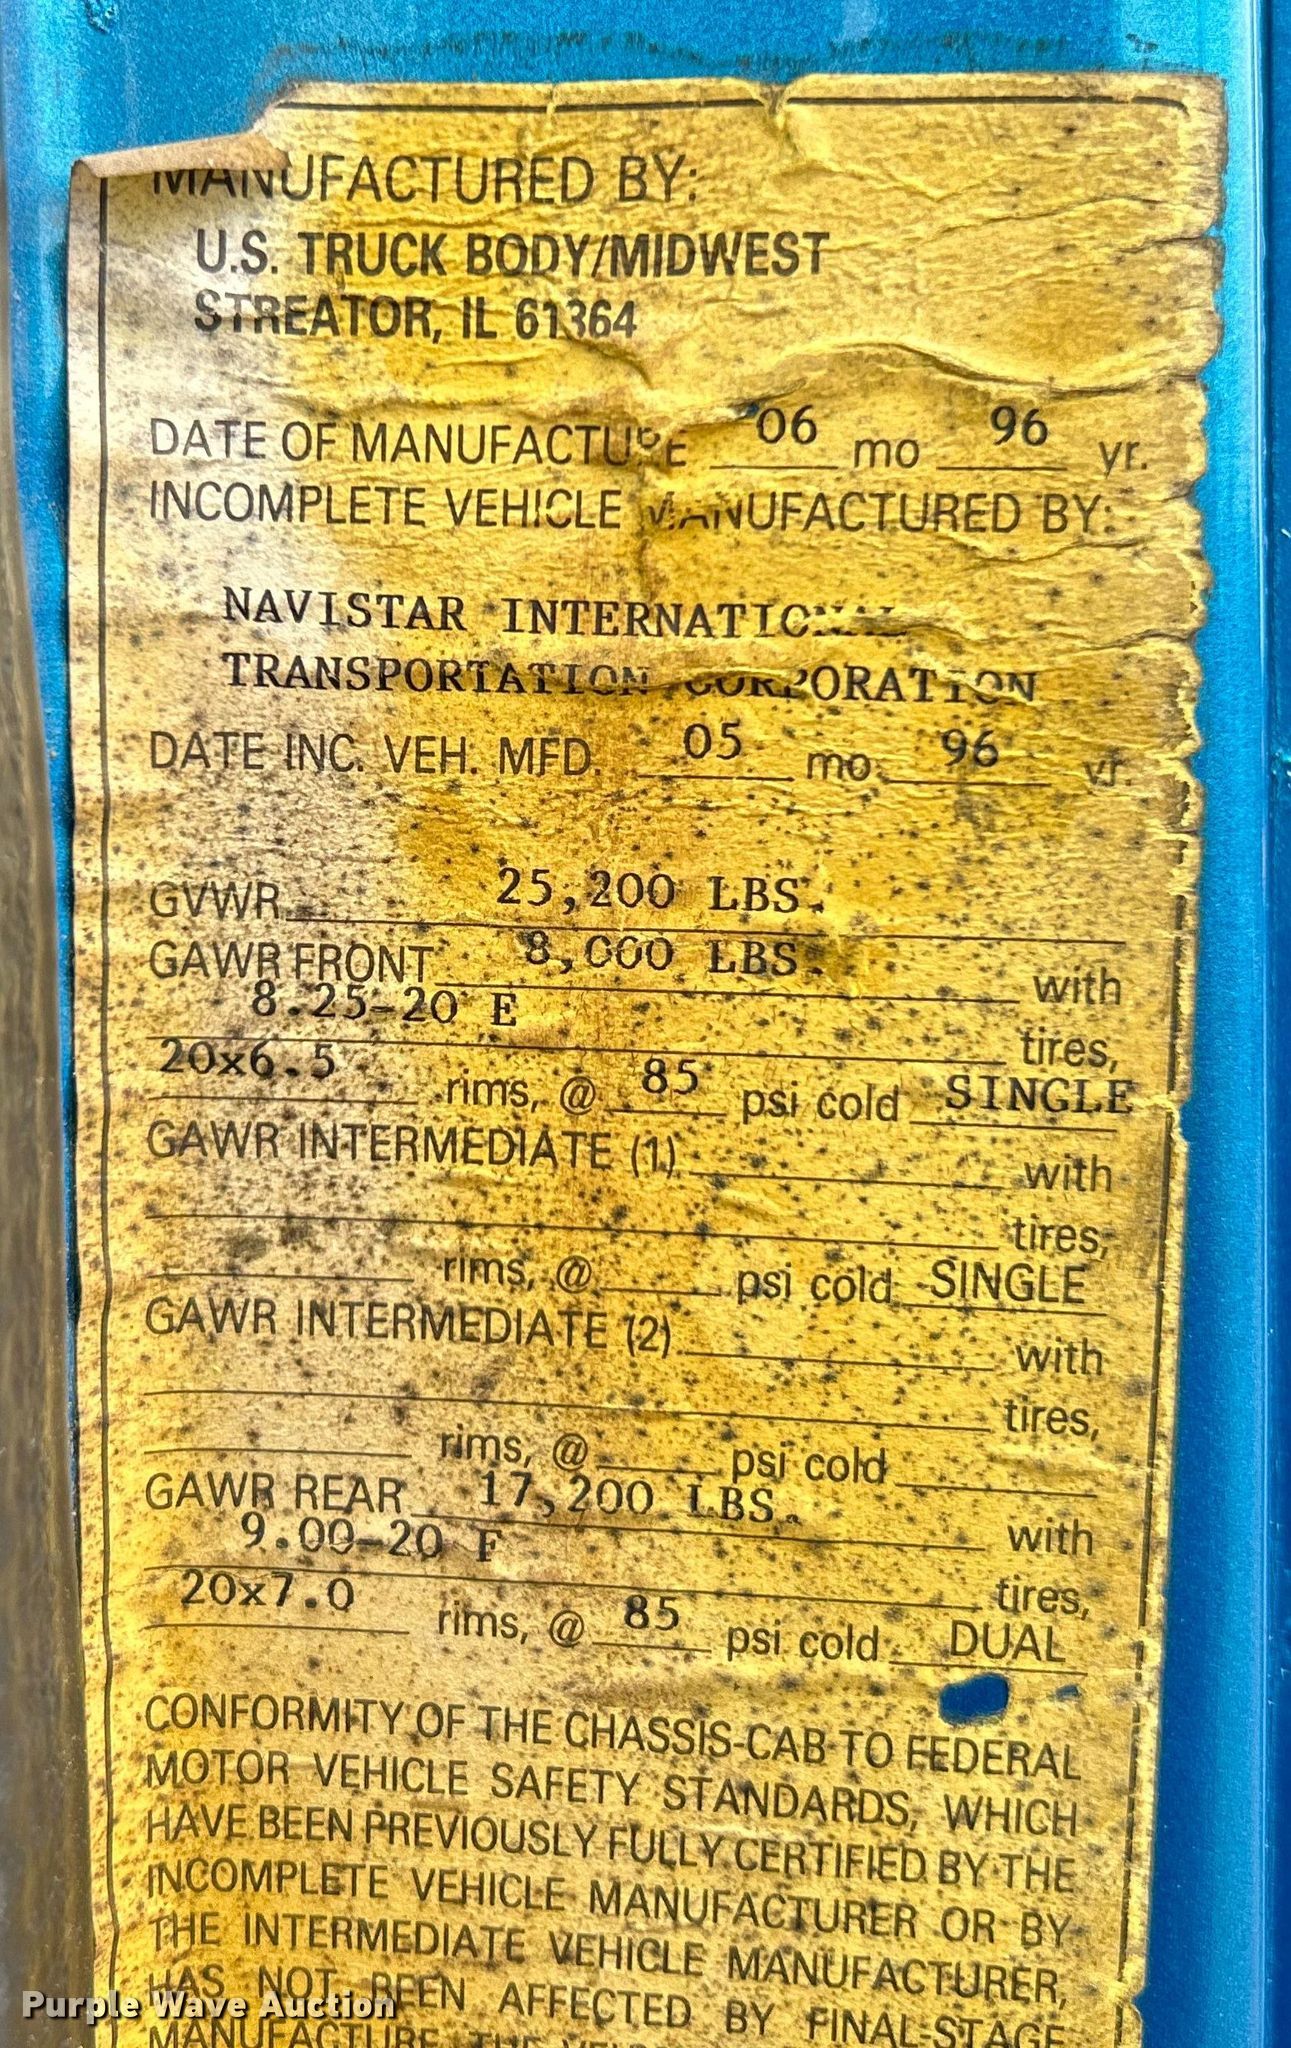 MANUFACTURED BY:
U.S. TRUCK BODY/MIDWEST
STREATOR, IL 61364
DATE OF MANUFACTURE 06 mo 96 yr.
INCOMPLETE VEHICLE MANUFACTURED BY:
NAVISTAR INTERNATIONAL
TRANSPORTATION CORPORATION
DATE INC. VEH. MFD. 05 mo 96 yr.
GVWR 25,200 LBS.
GAWR FRONT 8,000 LBS. with
8.25-20 E tires,
20x6.5 rims, @ 85 psi cold SINGLE
GAWR INTERMEDIATE (1) with
tires,
rims, @ psi cold SINGLE
GAWR INTERMEDIATE (2) with
tires,
rims, @ psi cold
GAWR REAR 17,200 LBS. with
9.00-20 F tires,
20x7.0 rims, @ 85 psi cold DUAL
CONFORMITY OF THE CHASSIS-CAB TO FEDERAL
MOTOR VEHICLE SAFETY STANDARDS, WHICH
HAVE BEEN PREVIOUSLY FULLY CERTIFIED BY THE
INCOMPLETE VEHICLE MANUFACTURER OR BY
THE INTERMEDIATE VEHICLE MANUFACTURER,
HAS NOT BEEN AFFECTED BY FINAL-STAGE
MANUFACTURE. THE
Purple Wave Auction